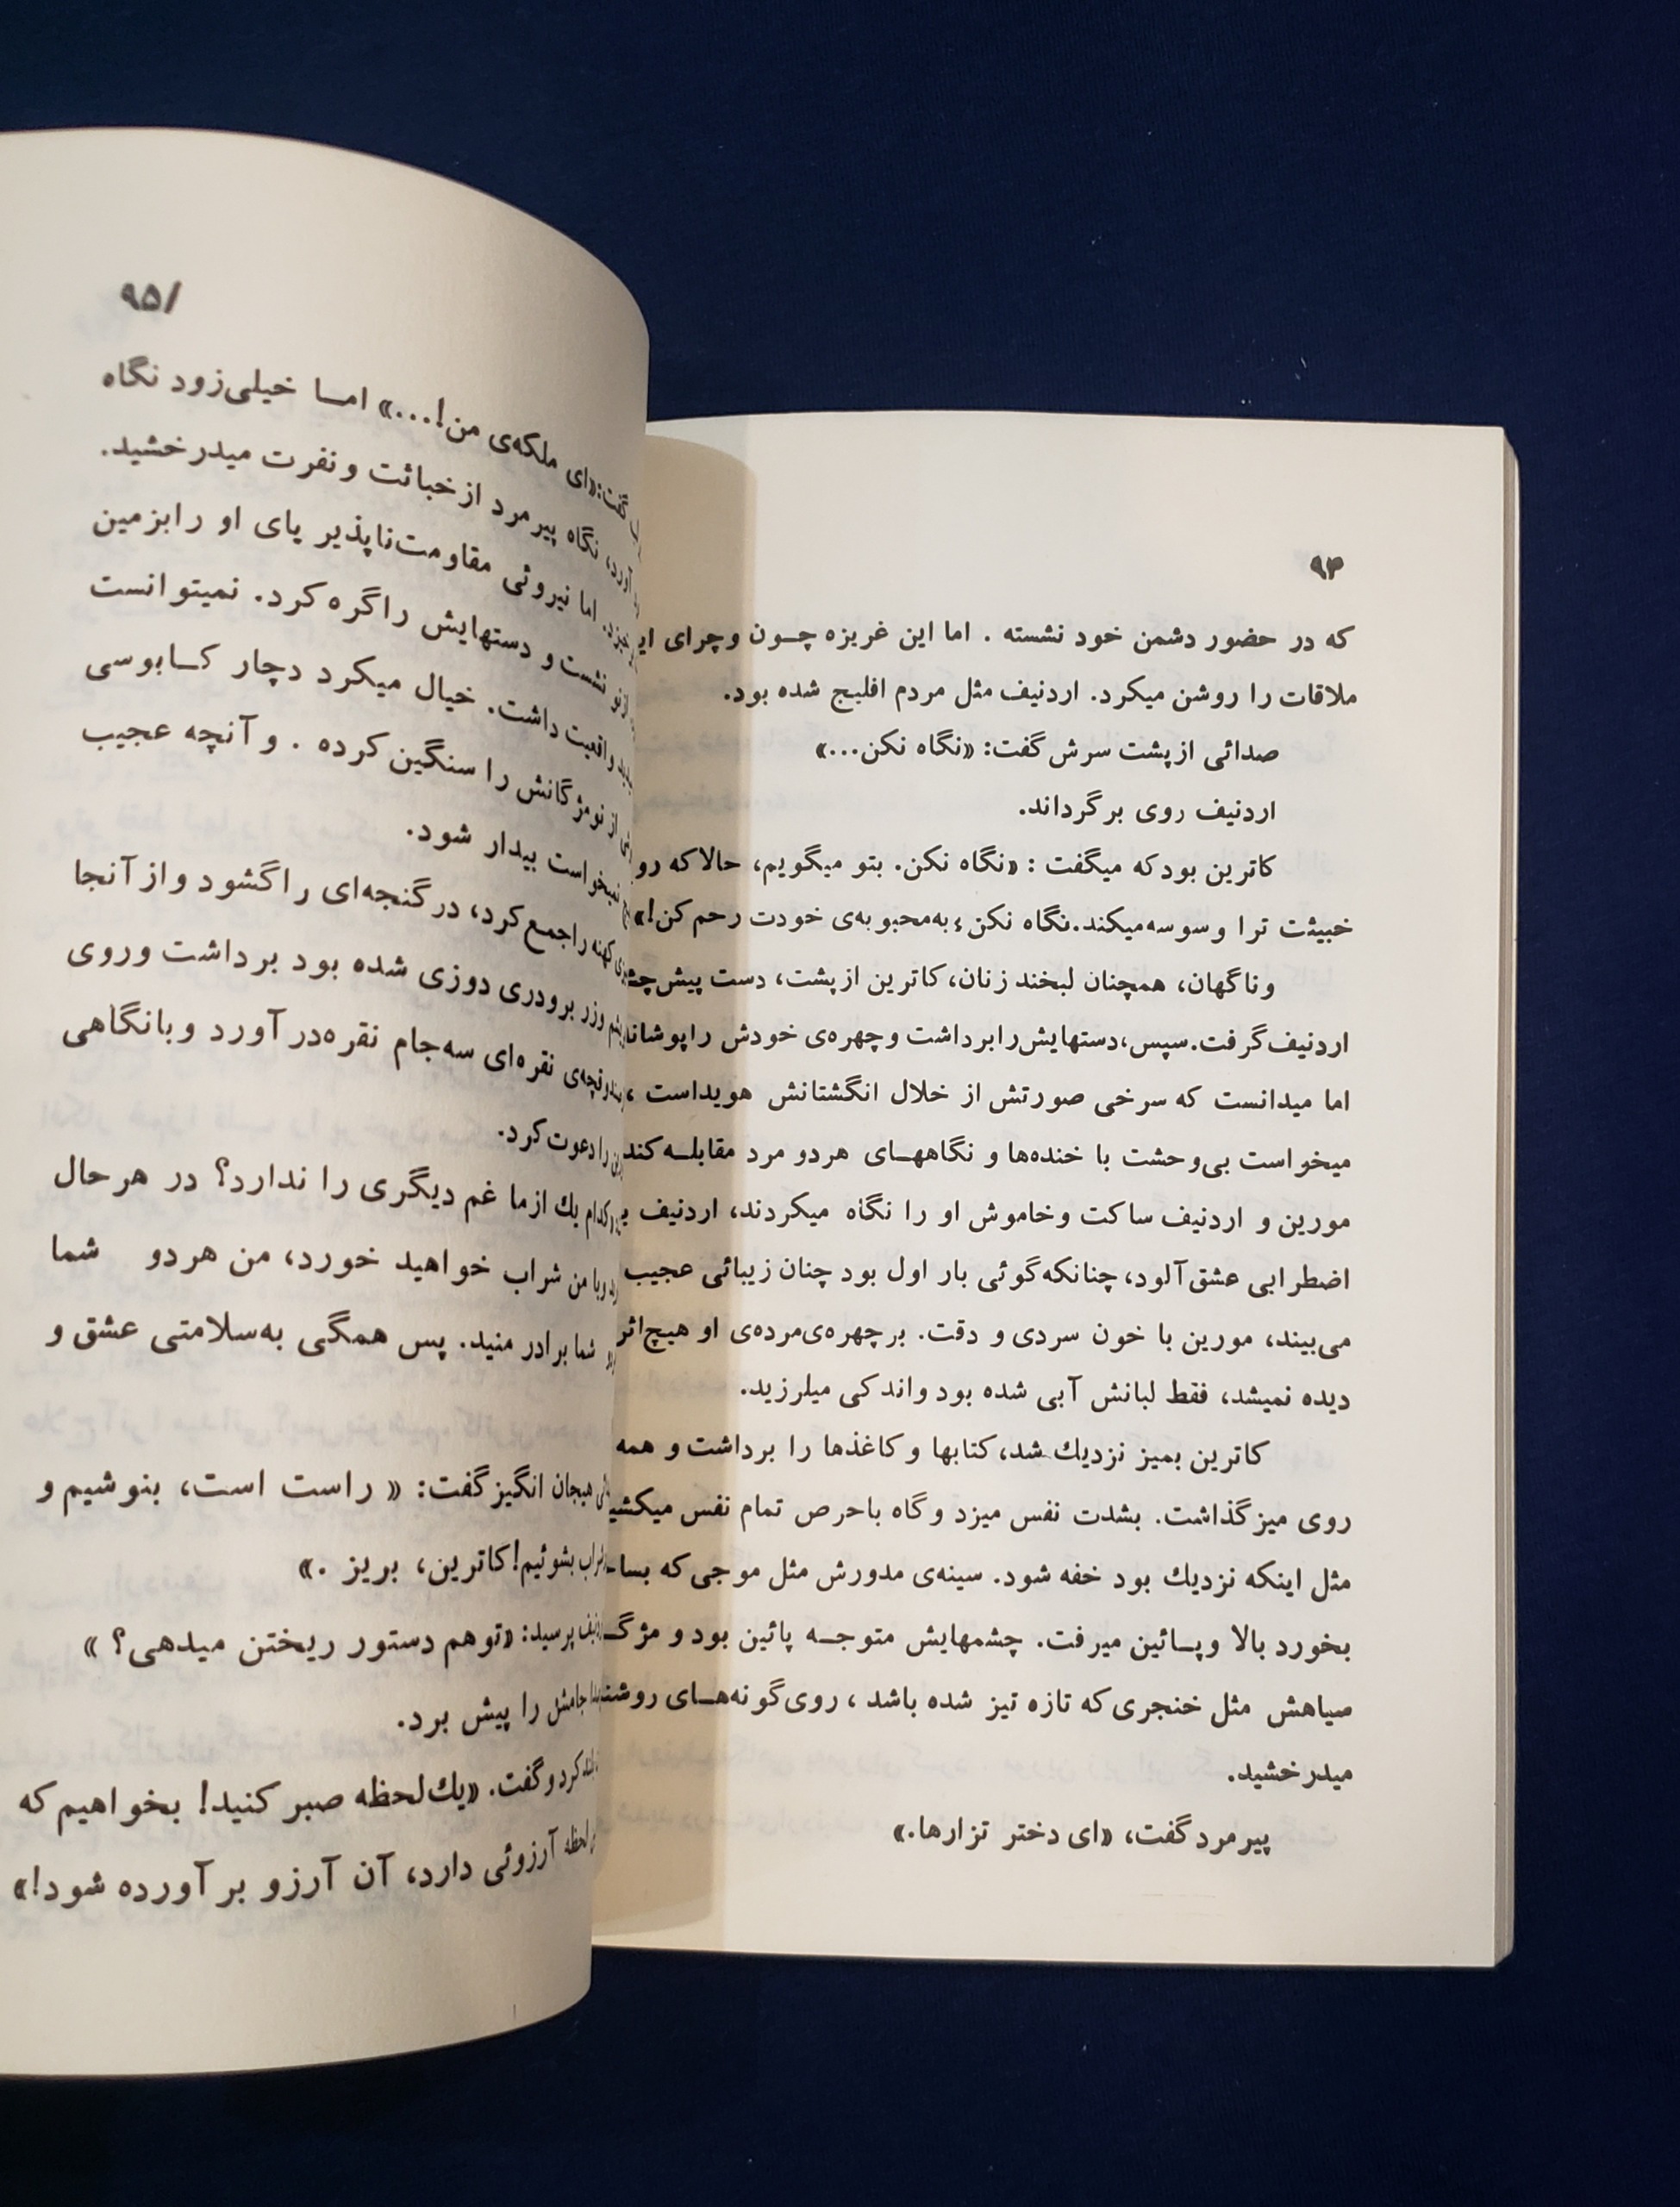 ۹۴
که در حضور دشمن خود نشسته . اما این غریزه چــون وچرای
ملاقات را روشن میکرد. اردنیف مثل مردم افلیج شده بود.
صدائی ازپشت سرش گفت: «نگاه نکن...»
اردنیف روی برگرداند.
کاترین بودکه میگفت : «نگاه نکن. بتو میگویم، حالاکه
خبیثت ترا وسوسه‌میکند.نگاه نکن، به‌محبوبه‌ی خودت رحم‌کن!»
وناگهان، همچنان لبخند زنان، کاترین ازپشت، دست پیش
اردنیف‌گرفت.سپس،دستهایش‌رابرداشت وچهره‌ی خودش را
اما میدانست که سرخی صورتش از خلال انگشتانش هویداست ،
میخواست بی‌وحشت با خنده‌ها و نگاههــای هردو مرد مقابلــه‌کند
مورین و اردنیف ساکت وخاموش او را نگاه میکردند، اردنیف
اضطرابی عشق‌آلود، چنانکه‌گوئی بار اول بود چنان زیبائی عجیب
می‌بیند، مورین با خون سردی و دقت. برچهره‌ی‌مرده‌ی او هیچ‌اثر
دیده نمیشد، فقط لبانش آبی شده بود واندکی میلرزید.
کاترین بمیز نزدیك شد، کتابها وکاغذها را برداشت و همه
روی میزگذاشت. بشدت نفس میزد وگاه باحرص تمام نفس
مثل اینکه نزدیك بود خفه شود. سینه‌ی مدورش مثل موجی‌که
بخورد بالا وپــائین میرفت. چشمهایش متوجــه پائین بود و
سیاهش مثل خنجری‌که تازه تیز شده باشد ، روی‌گونه‌هــای
میدرخشید.
پیرمردگفت، «ای دختر تزارها.»
/۹۵
گفت:«ای ملکه‌ی من!...» امــا خیلی‌زود نگاه
آورد، نگاه پیرمرد ازخباثت ونفرت میدرخشید.
اما نیروئی مقاومت‌ناپذیر پای او رابزمین
نشست و دستهایش راگره‌کرد. نمیتوانست
واقعیت داشت. خیال میکرد دچار کــابوسی
از نومژگانش را سنگین‌کرده . وآنچه عجیب
نمیخواست بیدار شود.
کهنه راجمع‌کرد، درگنجه‌ای راگشود وازآنجا
وزر برودری دوزی شده بود برداشت وروی
نقره‌ای سه‌جام نقره‌درآورد وبانگاهی
را دعوت‌کرد.
کدام یك ازما غم دیگری را ندارد؟ در هرحال
وبا من شراب خواهید خورد، من هردو شما
شما برادر منید. پس همگی به‌سلامتی عشق و
هیجان انگیزگفت: « راست است، بنوشیم و
بشوئیم!کاترین، بریز .»
پرسید: «توهم دستور ریختن میدهی؟ »
جامش را پیش برد.
کرد وگفت. «یك‌لحظه صبرکنید! بخواهیم‌که
لحظه آرزوئی دارد، آن آرزو برآورده شود!»